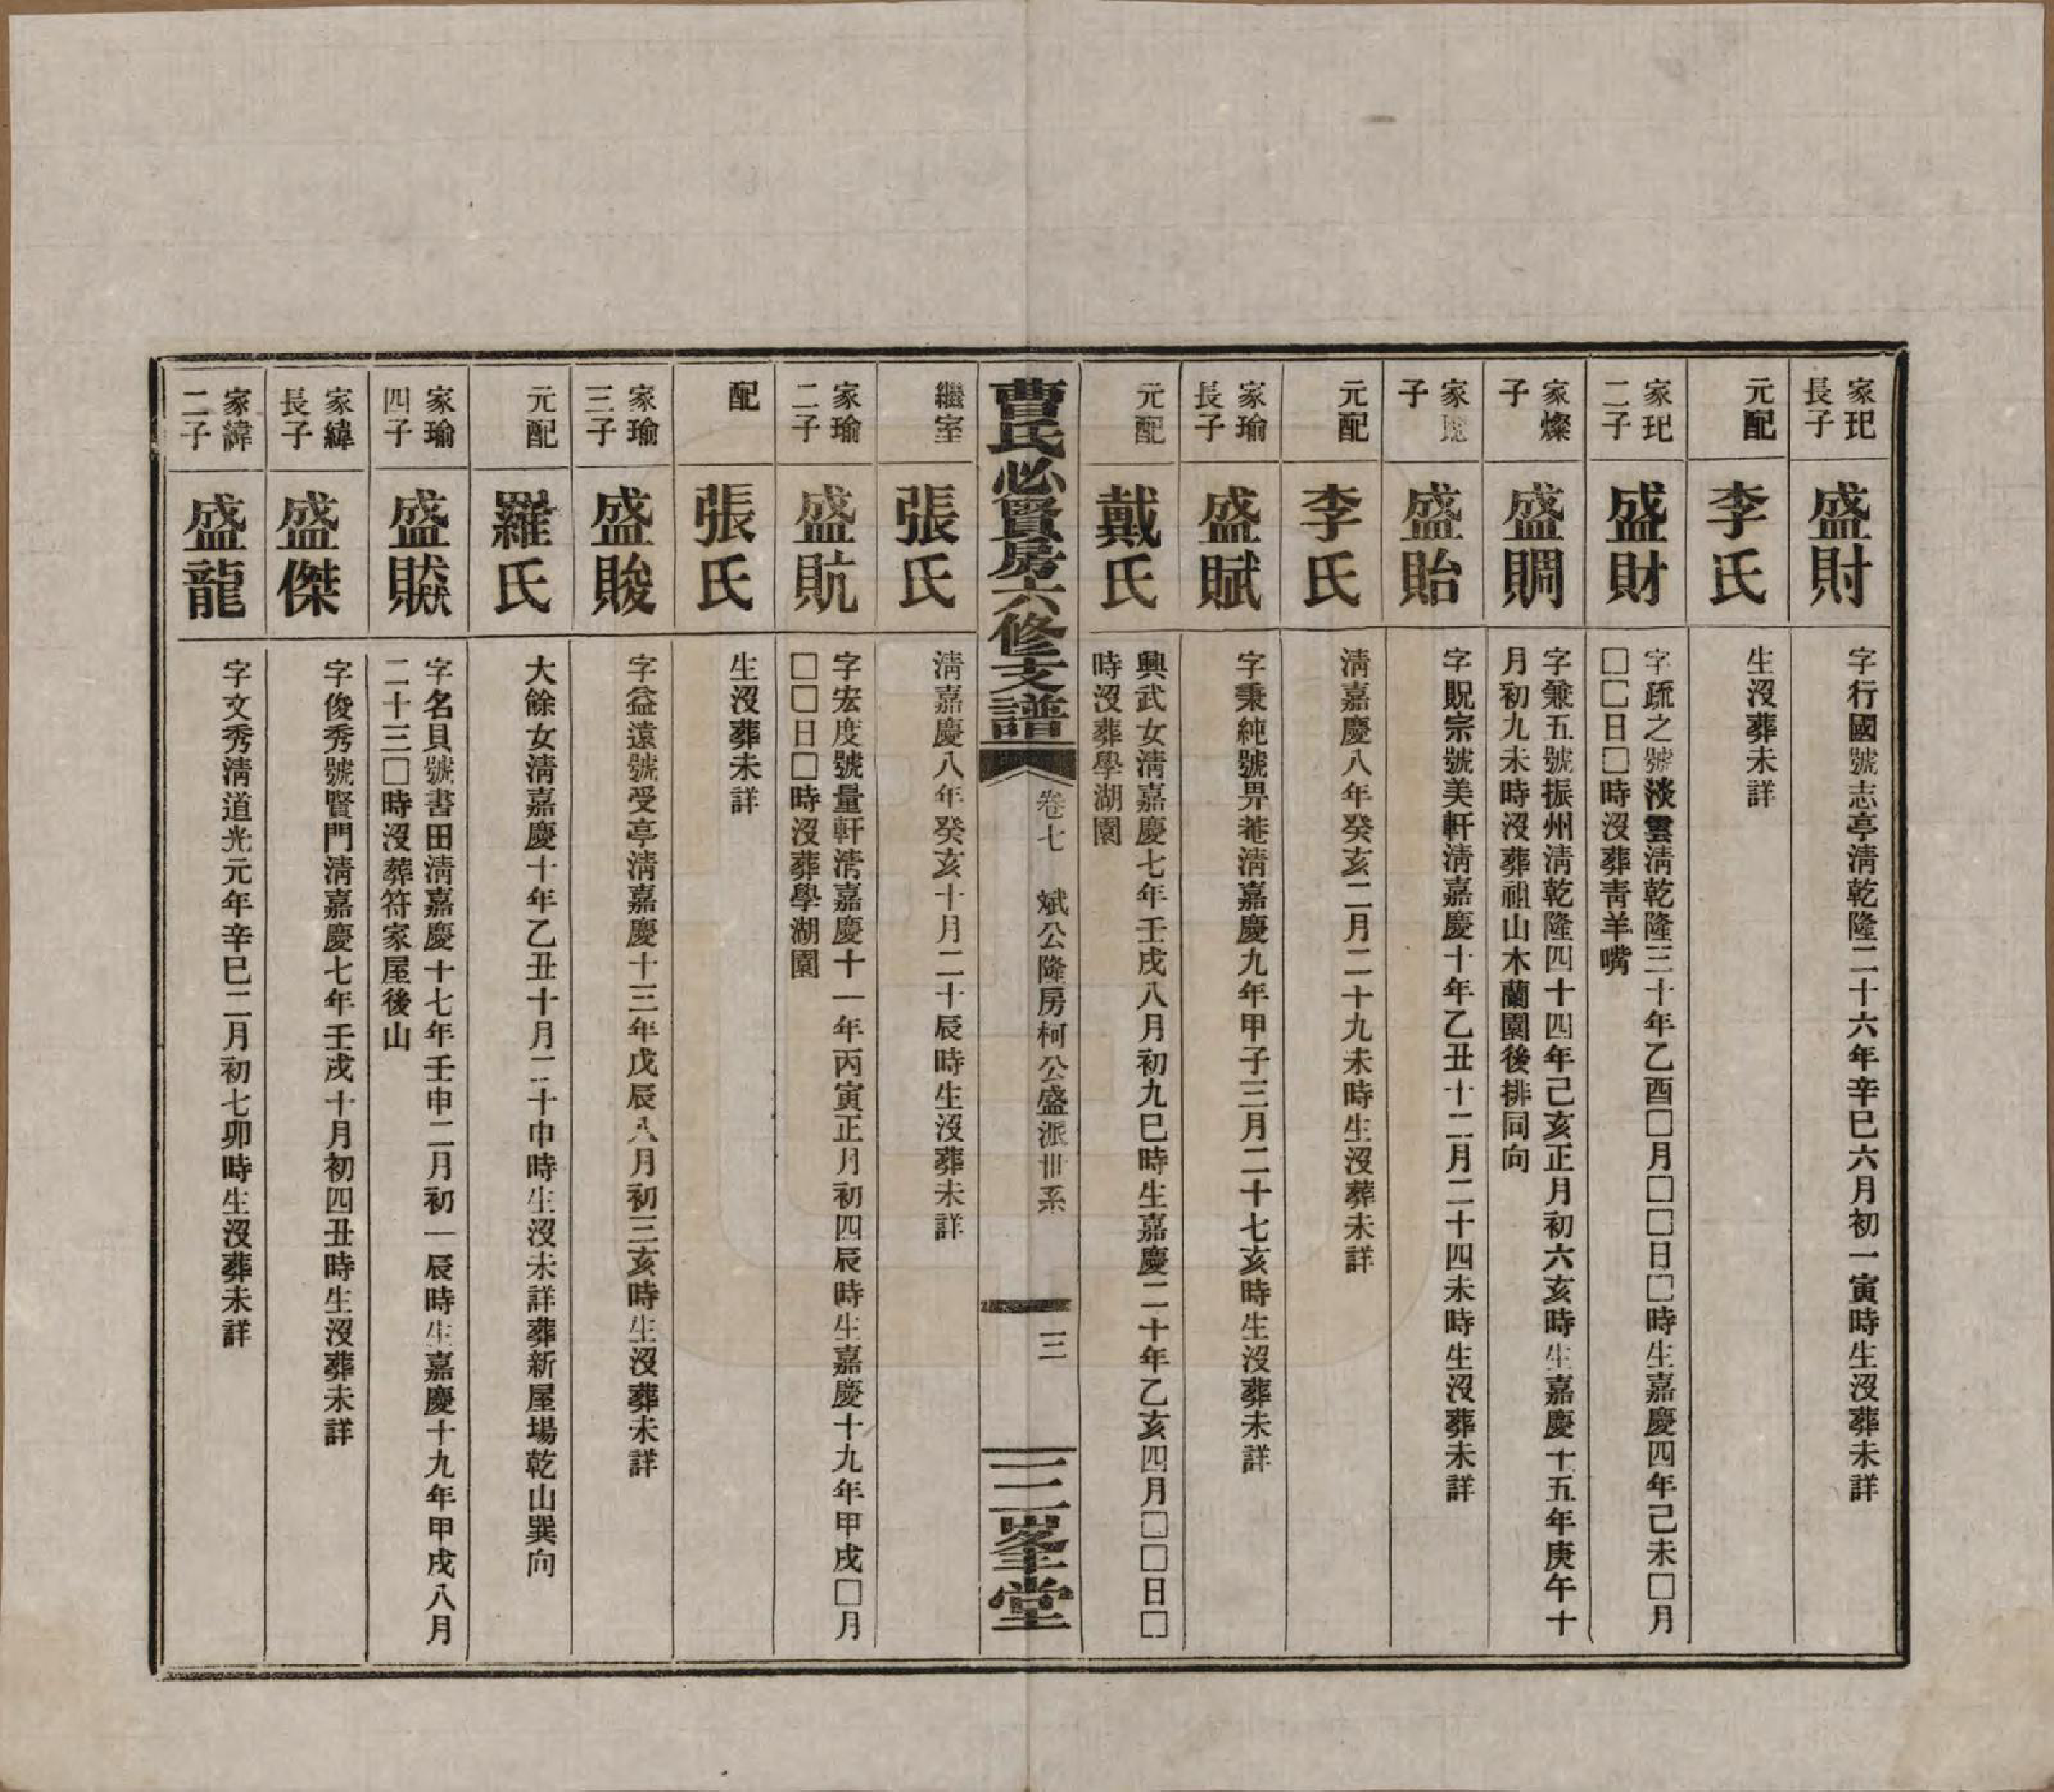 家玘
長子
盛財
字行國號志亭淸乾隆二十六年辛巳六月初一寅時生沒葬未詳
元配
李氏
生沒葬未詳
家玘
二子
盛財
字疏之號淡雲淸乾隆三十年乙酉□月□□日□時生嘉慶四年己未□月
□□日□時沒葬靑羊嘴
家燦
子
盛賙
字兼五號振州淸乾隆四十四年己亥正月初六亥時生嘉慶十五年庚午十
月初九未時沒葬祖山木蘭園後排同向
家
子
盛貽
字貺宗號美軒淸嘉慶十年乙丑十二月二十四未時生沒葬未詳
元配
李氏
淸嘉慶八年癸亥二月二十九未時生沒葬未詳
家瑜
長子
盛賦
字秉純號畀菴淸嘉慶九年甲子三月二十七亥時生沒葬未詳
元配
戴氏
興武女淸嘉慶七年壬戌八月初九巳時生嘉慶二十年乙亥四月□□日□
時沒葬學湖園
曹氏必賢房六修支譜
卷七 斌公隆房柯公盛派卅系
三
三峯堂
繼室
張氏
淸嘉慶八年癸亥十月二十辰時生沒葬未詳
家瑜
二子
盛貥
字宏度號量軒淸嘉慶十一年丙寅正月初四辰時生嘉慶十九年甲戌□月
□□日□時沒葬學湖園
配
張氏
生沒葬未詳
家瑜
三子
盛賐
字益遠號受亭淸嘉慶十三年戊辰八月初三亥時生沒葬未詳
元配
羅氏
大餘女淸嘉慶十年乙丑十月二十申時生沒未詳葬新屋場乾山巽向
家瑜
四子
盛
字名貝號書田淸嘉慶十七年壬申二月初一辰時生嘉慶十九年甲戌八月
二十三□時沒葬符家屋後山
家緯
長子
盛傑
字俊秀號賢門淸嘉慶七年壬戌十月初四丑時生沒葬未詳
家緯
二子
盛龍
字文秀淸道光元年辛巳二月初七卯時生沒葬未詳